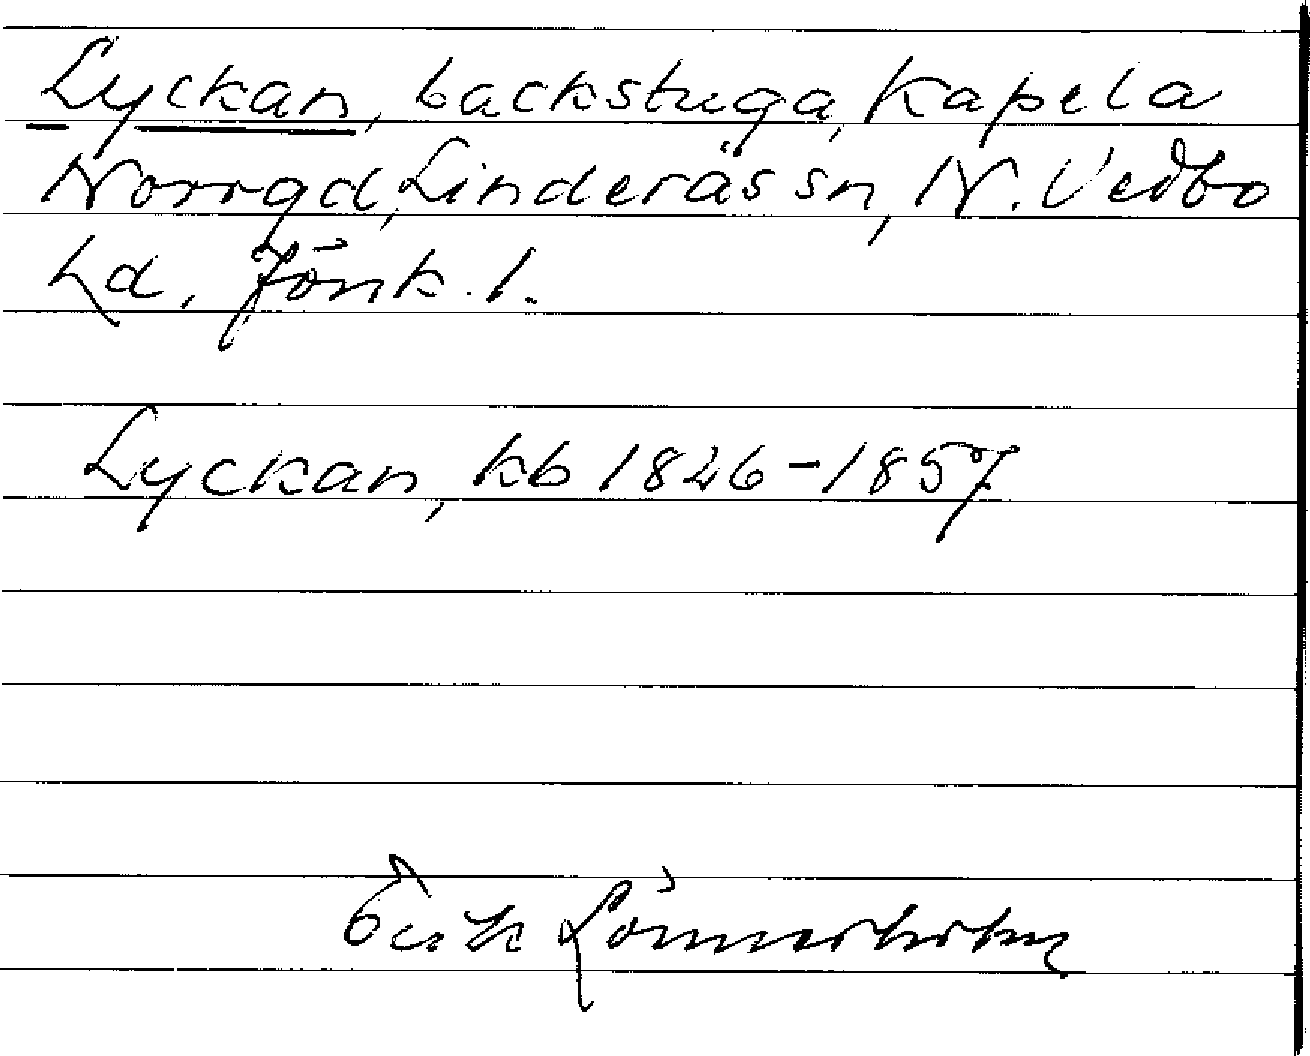 Lyckan, backstuga, Kapela
Norrgd, Linderås sn, N. Vedbo
hd, Jönk. l.
Lyckan, kb 1826-1857
Erik Lönnerholm